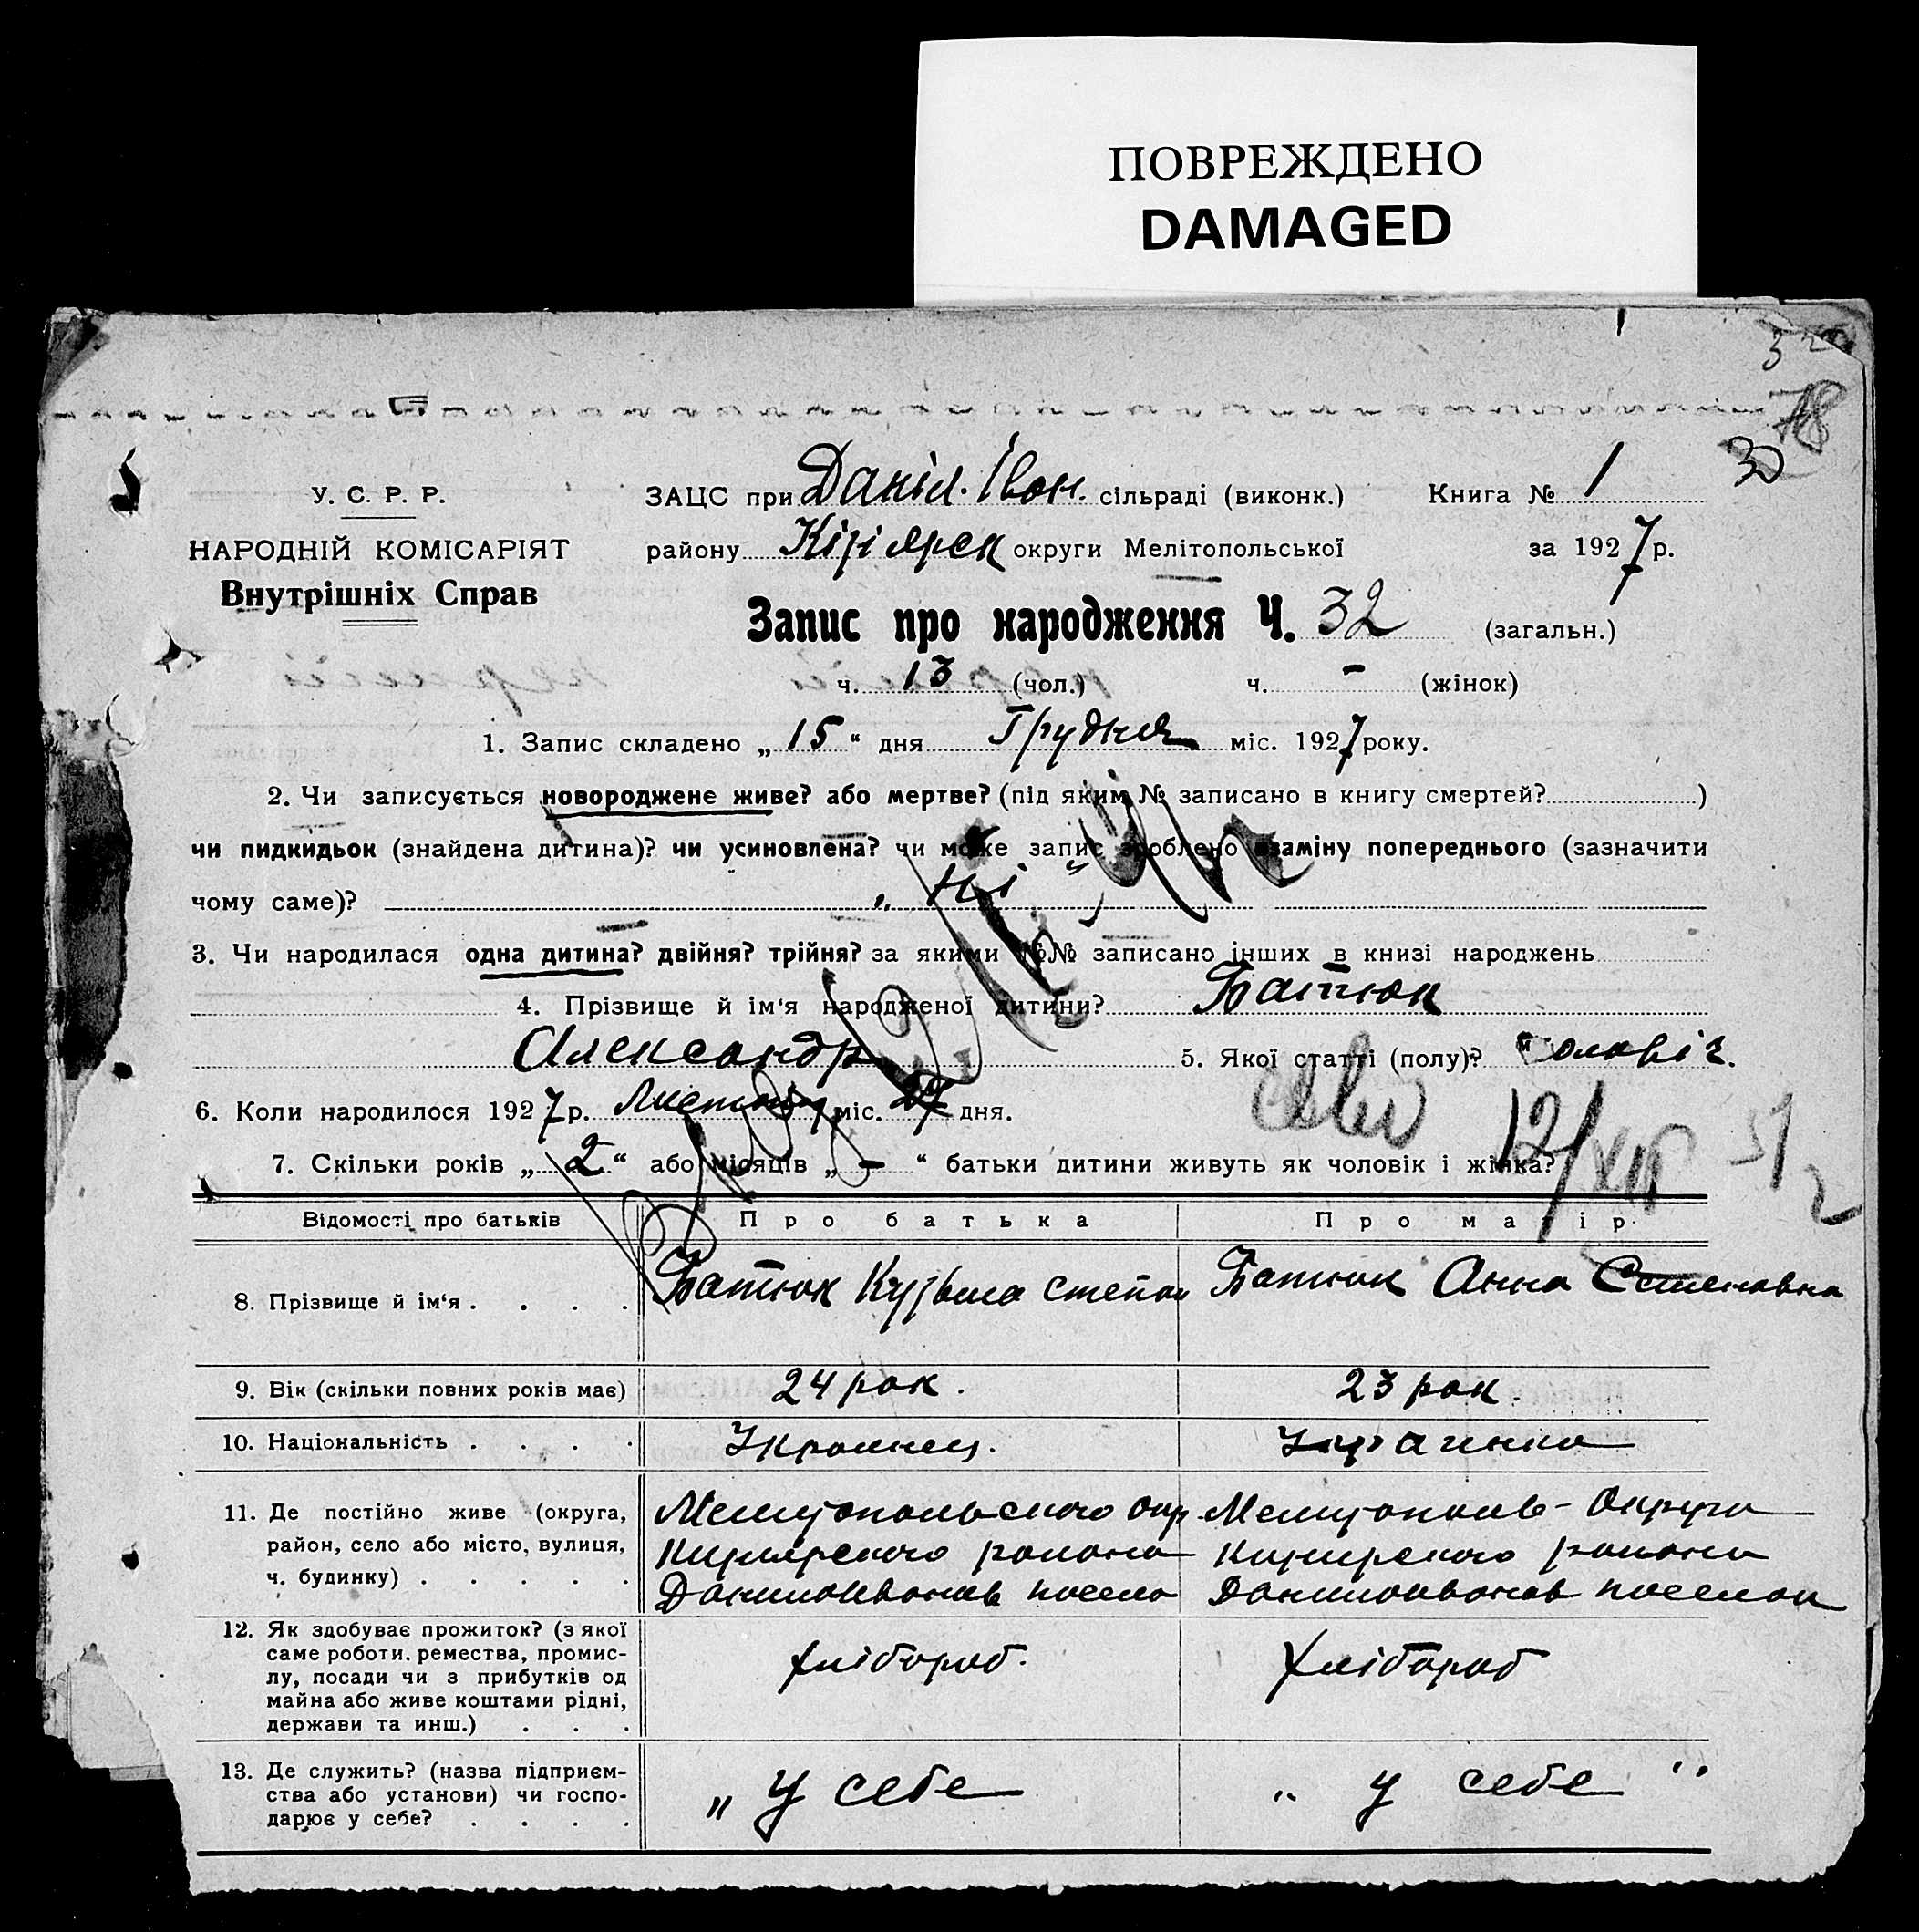 ПОВРЕЖДЕНО
DAMAGED
32
78
У. С. Р. Р.
НАРОДНІЙ КОМІСАРІЯТ
Внутрішніх Справ
ЗАЦС при Даніл. Івон. сільраді (виконк.) Книга № 1
району Кізіярск округи Мелітопольської за 1927 р.
Запис про народження Ч. 32 (загальн.)
ч. 13 (чол.) ч. - (жінок)
1. Запис складено „ 15 “ дня Грудня міс. 1927 року.
2. Чи записується новороджене живе? або мертве? (під яким № записано в книгу смертей?)
чи пидкидьок (знайдена дитина)? чи усиновлена? чи може запис зроблено взаміну попереднього (зазначити
чому саме)? „ Ні “
3. Чи народилася одна дитина? двійня? трійня? за якими №№ записано інших в книзі народжень
4. Прізвище й ім‘я народженої дитини? Батюк
Александр 5. Якої статті (полу)? чоловіч.
6. Коли народилося 1927 р. міс. дня.
7. Скільки років „ 2 “ або місяців „ - “ батьки дитини живуть як чоловік і жінка?
12/XII
Відомості про батьків Про батька Про матір
8. Прізвище й ім‘я . . . . Батюк Кузьма Степан Батюк Анна Степановна
9. Вік (скільки повних років має) 24 рок. 23 рок.
10. Національність . . . . Украинец. Украинка
11. Де постійно живе (округа, район, село або місто, вулиця, ч. будинку) . . . . .
Мелитопольского окр Мелитополь- Округа
Кизиярского района Кизиярского района
Данилоивонов посело Данилоивонов поселок
12. Як здобуває прожиток? (з якої
саме роботи, ремества, промис-
лу, посади чи з прибутків од
майна або живе коштами рідні,
держави та инш.) . . .
хлібороб. хлібороб
13. Де служить? (назва підприєм-
ства або установи) чи госпо-
дарює у себе? . . . .
„ у себе „ у себе “